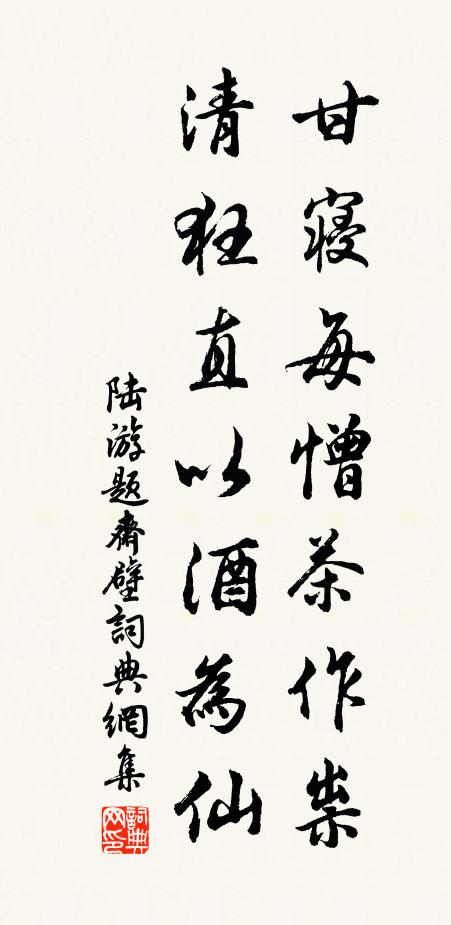 甘寝每憎茶作祟
清狂直以酒為仙
陆游题齋壁詞典網集
詞典网印